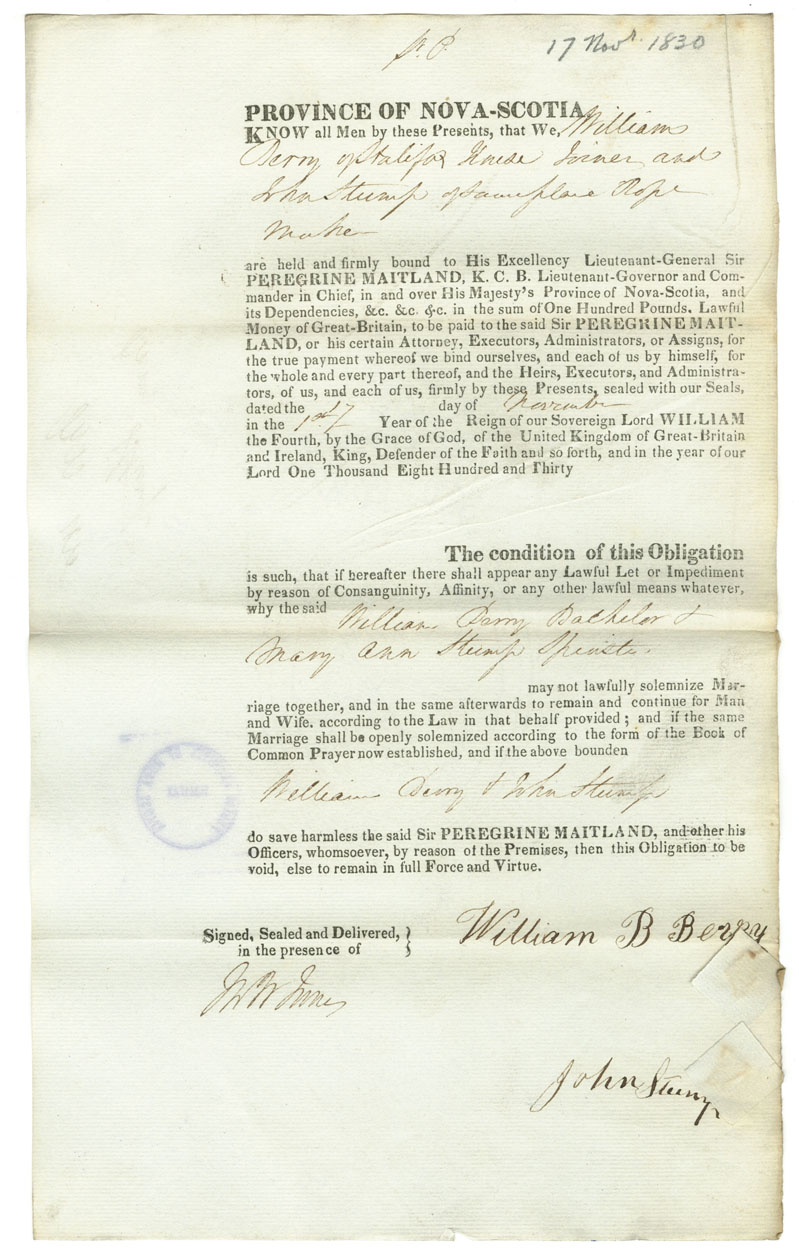 17 Novr. 1830
PROVINCE OF NOVA-SCOTIA
KNOW all Men by these Presents, that We, William
Berry of Halifax House Joiner and
John Stump of same place Rope
Maker
are held and firmly bound to His Excellency Lieutenant-General Sir
PEREGRINE MAITLAND, K. C. B. Lieutenant-Governor and Com-
mander in Chief, in and over His Majesty's Province of Nova-Scotia, and
its Dependencies, &c. &c. &c. in the sum of One Hundred Pounds. Lawful
Money of Great-Britain, to be paid to the said Sir PEREGRINE MAIT-
LAND, or his certain Attorney, Executors, Administrators, or Assigns, for
the true payment whereof we bind ourselves, and each of us by himself, for
the whole and every part thereof, and the Heirs, Executors, and Administra-
tors, of us, and each of us, firmly by these Presents, sealed with our Seals,
dated the 17 day of November
in the 1st Year of the Reign of our Sovereign Lord WILLIAM
the Fourth, by the Grace of God, of the United Kingdom of Great-Britain
and Ireland, King, Defender of the Faith and so forth, and in the year of our
Lord One Thousand Eight Hundred and Thirty
The condition of this Obligation
is such, that if hereafter there shall appear any Lawful Let or Impediment
by reason of Consanguinity, Affinity, or any other lawful means whatever,
why the said William Berry Bachelor &
Mary Ann Stump Spinster.
may not lawfully solemnize Mar-
riage together, and in the same afterwards to remain and continue for Man
and Wife. according to the Law in that behalf provided ; and if the same
Marriage shall be openly solemnized according to the form of the Book of
Common Prayer now established, and if the above bounden
William Berry & John Stump
do save harmless the said Sir PEREGRINE MAITLAND, and other his
Officers, whomsoever, by reason of the Premises, then this Obligation to be
void, else to remain in full Force and Virtue.
Signed, Sealed and Delivered,
in the presence of
William B Berry
John Stump